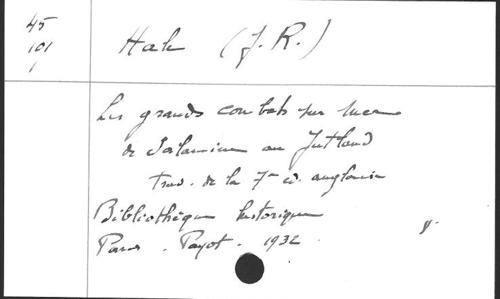 45
101
1
Hale (J. R.)
Les grands combats sur mer
de Salamine au Jutland
trad. de la 7me éd. anglaise
Bibliothèque historique
Paris. Payot. 1932